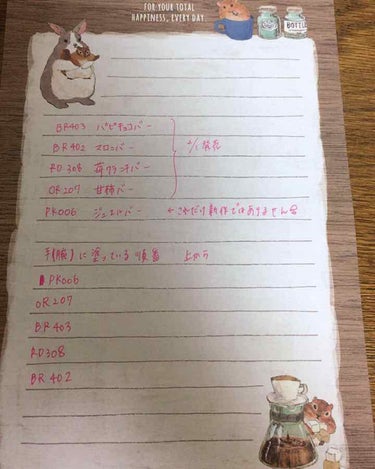 FOR YOUR TOTAL
HAPPINESS, EVERY DAY.
BOTTLE
BR403 バピチョコバー
BR402 マロンバー
RD308 苺クランチバー
OR207 甘柿バー
2/1発売
PK006 ジュエルバー ←これだけ新作ではありません
手(腕)に塗っている順番 上から
PK006
OR207
BR403
RD308
BR402